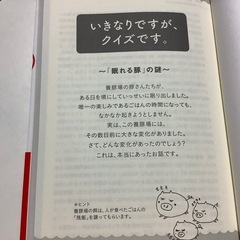 いきなりですが、
クイズです。
〜「眠れる豚」の謎〜
養豚場の豚さんたちが、
ある日を境にしていっせいに眠り出しました。
唯一の楽しみであるごはんの時間になっても、
なかなか起きようとしません。
実は、この養豚場には、
その数日前に大きな変化がありました。
さて、どんな変化があったのでしょう?
これは、本当にあったお話です。
＊ヒント
養豚場の豚は、人が食べたごはんの
「残飯」を譲ってもらいます。